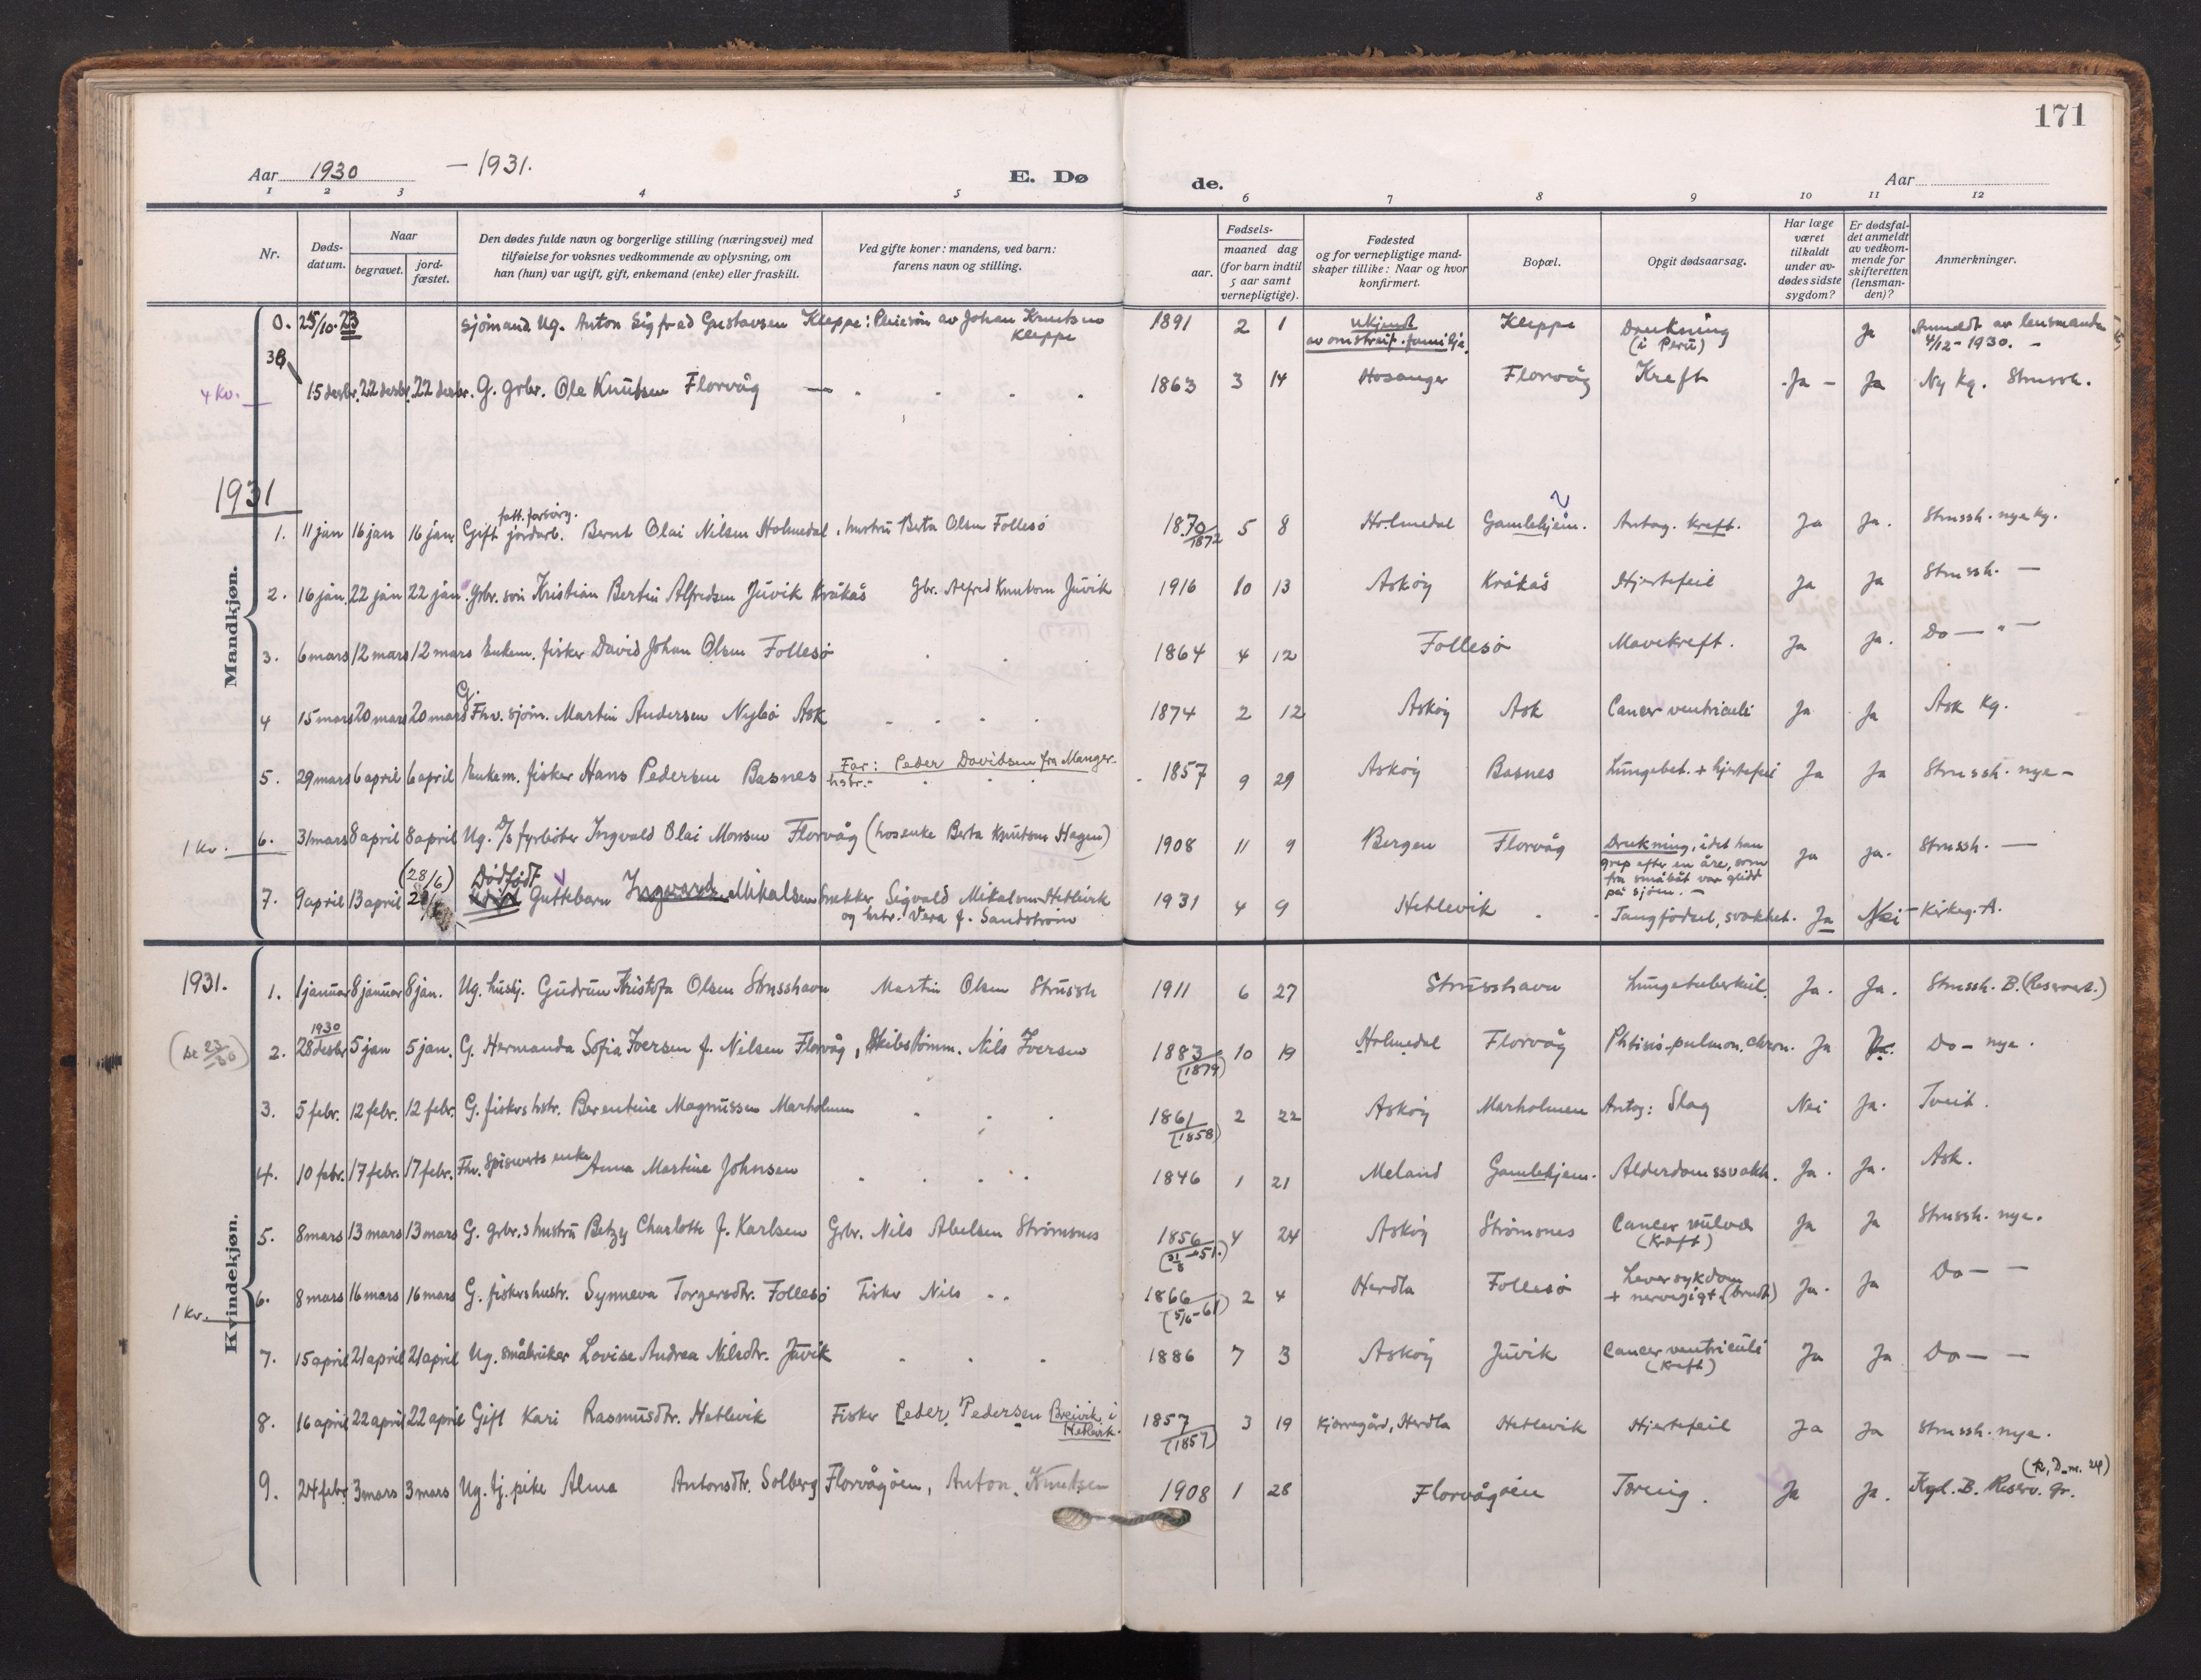 171
Aar 1930 — 1931.
E. Dø
de.
Aar
1 2 3 4 5 6 7 8 9 10 11 12
Nr.
Døds-
datum.
Naar
begravet.
jord-
fæstet.
Den dødes fulde navn og borgerlige stilling (næringsvei) med
tilføielse for voksnes vedkommende av oplysning, om
han (hun) var ugift, gift, enkemand (enke) eller fraskilt.
Ved gifte koner: mandens, ved barn:
farens navn og stilling.
Fødsels-
aar.
maaned dag
(for barn indtil
5 aar samt
vernepligtige).
Fødested
og for vernepligtige mand-
skaper tillike: Naar og hvor
konfirmert.
Bopæl.
Opgit dødsaarsag.
Har læge
været
tilkaldt
under av-
dødes sidste
sygdom?
Er dødsfal-
det anmeldt
av vedkom-
mende for
skifteretten
(lensman-
den)?
Anmerkninger.
Mandkjøn.
0. 25/10 23 Sjømand Ug. Anton Sigfred Gustavsen Kleppe: Pleiesøn av Johan Knutsen
Kleppe
1891 2 1 ukjendt
av omstreif. familje. Kleppe Drukning
(i Peru) Ja Anmeldt av lensmanden
4/12-1930. -
38
4 Kv. 15 desbr. 22 desbr. 22 desbr. G. grbr. Ole Knutsen Florvåg — 1863 3 14 Hosanger Florvåg Kreft Ja - Ja Ny kg. Strussh.
1931
1. 11 jan 16 jan 16 jan. Gift fatt. forsørg.
jordarb. Bernt Olai Nilsen Holmedal, hustru Berta Olsen Follesø 1870
1872 5 8 Holmedal Gamlehjem. Antag. kreft. Ja Ja. Strussh. nye kg.
2. 16 jan. 22 jan 22 jan. Grbr. søn Kristian Bertin Alfredsen Juvik Kråkås Gbr. Alfred Knutsen Juvik 1916 10 13 Askøy Kråkås Hjertefeil Ja Ja Strussh. —
3. 6 mars 12 mars 12 mars Enkem. fisker David Johan Olsen Follesø 1864 4 12 Follesø Mavekreft. Ja Ja. Do — " —
4 15 mars 20 mars 20 mars G. Fhv. sjøm. Martin Andersen Nybø Ask 1874 2 12 Askøy Ask Cancer ventriculi Ja Ja Ask kg.
5. 29 mars 6 april 6 april Enkem. fisker Hans Pedersen Basnes Far: Peder Davidsen fra Manger.
hstr.- 1857 9 29 Askøy Basnes Lungebet. + hjertefeil Ja Ja Strussh. nye -
1 Kv. 6. 31 mars 8 april 8 april Ug. D/s fyrbøter Ingvald Olai Monsen Florvåg (hos enke Berta Knutsen Hagen) 1908 11 9 Bergen Florvåg Drukning, idet han
grep efter en åre, som
fra småbåt var glidt
på sjøen. - Ja Ja. Strussh. —
7. 9 april 13 april (28/6) Dødfødt
Guttebarn Ingvard Mikalsen Snekker Sigvald Mikalsen Hetlevik
og hstr. Vera f. Sandstrøm 1931 4 9 Hetlevik Tangfødsel, svakhet. Ja Nei - Kirkeg. A.
Kvindekjøn.
1931.
1. 1 januar 8 januar 8 jan. Ug. husj. Gudrun Kristofa Olsen Strusshavn Martin Olsen Strussh 1911 6 27 Strusshavn Lungetuberkul. Ja. Ja. Strussh. B. (Reservert.)
(se 23/30) 2. 1930
28 desbr 5 jan 5 jan. G. Hermanda Sofia Iversen f. Nilsen Florvåg, Skibstømm. Nils Iversen 1883
(1879) 10 19 Holmedal Florvåg Phtisis pulmon. chron. Ja Ja. Do - nye.
3. 5 febr. 12 febr. 12 febr. G. fiskers hstr. Berentine Magnussen Marholmen 1861
(1858) 2 22 Askøy Marholmen Antog: Slag Nei Ja. Tveit.
4. 10 febr. 17 febr. 17 febr. Fhv. Spiseverts enke Anna Martine Johnsen 1846 1 21 Meland Gamlehjem. Alderdomssvakh. Ja. Ja. Ask.
5. 8 mars 13 mars 13 mars G. grbr.s hustru Betzy Charlotte f. Karlsen Grbr. Nils Abelsen Strømsnes 1856
4 24 Askøy Strømsnes Cancer vulvae
(kreft) Ja Ja Strussh. nye.
1 Kv. 6. 8 mars 16 mars 16 mars G. fiskershustr. Synneva Torgersdtr. Follesø Fisker Nils 1866
(5/6-61) 2 4 Herdla Follesø Leversykdom
+ nervegigt (brudt) Ja. Ja Do — —
7. 15 april 21 april 21 april Ug. småbruker Lovise Andrea Nilsdtr. Juvik 1886 7 3 Askøy Juvik Cancer ventriculi
(kreft) Ja Ja Do — —
8. 16 april 22 april 22 april Gift Kari Rasmusdtr. Hetlevik Fisker Peder Pedersen Breivik i
Hetlevik. 1857
(1857) 3 19 Kjørregård, Herdla Hetlevik Hjertefeil Ja Ja Strussh. nye.
9. 24 febr. 3 mars 3 mars Ug. tj. pike Alma Antonsdtr. Solberg Florvågøen, Anton Knutsen 1908 1 28 Florvågøen Tæring. Ja Ja. Kgd. B. Reserv. gr.